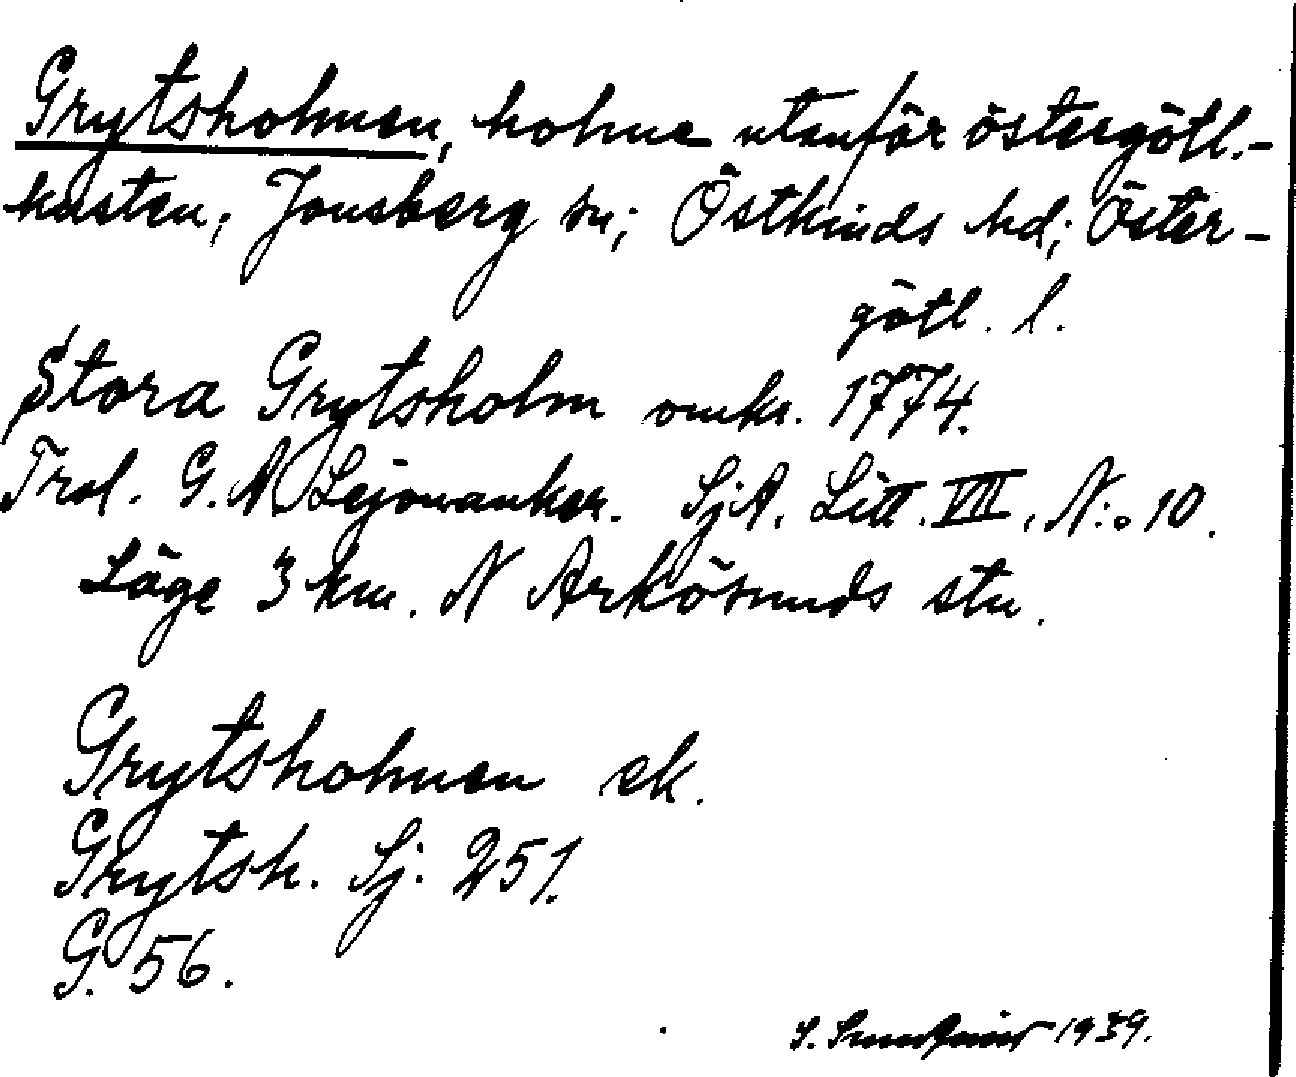 Grytsholmen, holme utanför östergötl.-
kusten, Jonsberg sn; Östkinds hd; Öster-
götl. l.
Stora Grytsholm omkr. 1774.
Trol. G. A Lejonanker. SjA. Litt. VIII, N:o 10.
Läge 3 km. N Arkösunds stn.
Grytsholmen ek.
Grytsh. Sj. 251.
G. 56.
S. 1939.